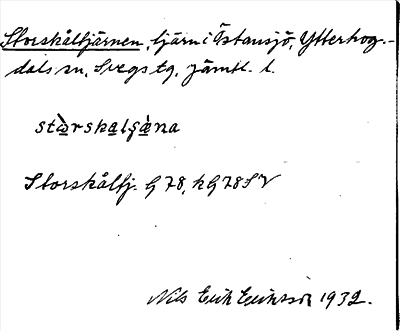 Storskåltjärnen, tjärn i Östansjö, Ytterhog-
dals sn, Svegs tg, Jämtl. l.
stɷ̀rskalʂæ̀na
Storskåltj. G 78, hG 78 SV
Nils Erik Eriksson 1932.